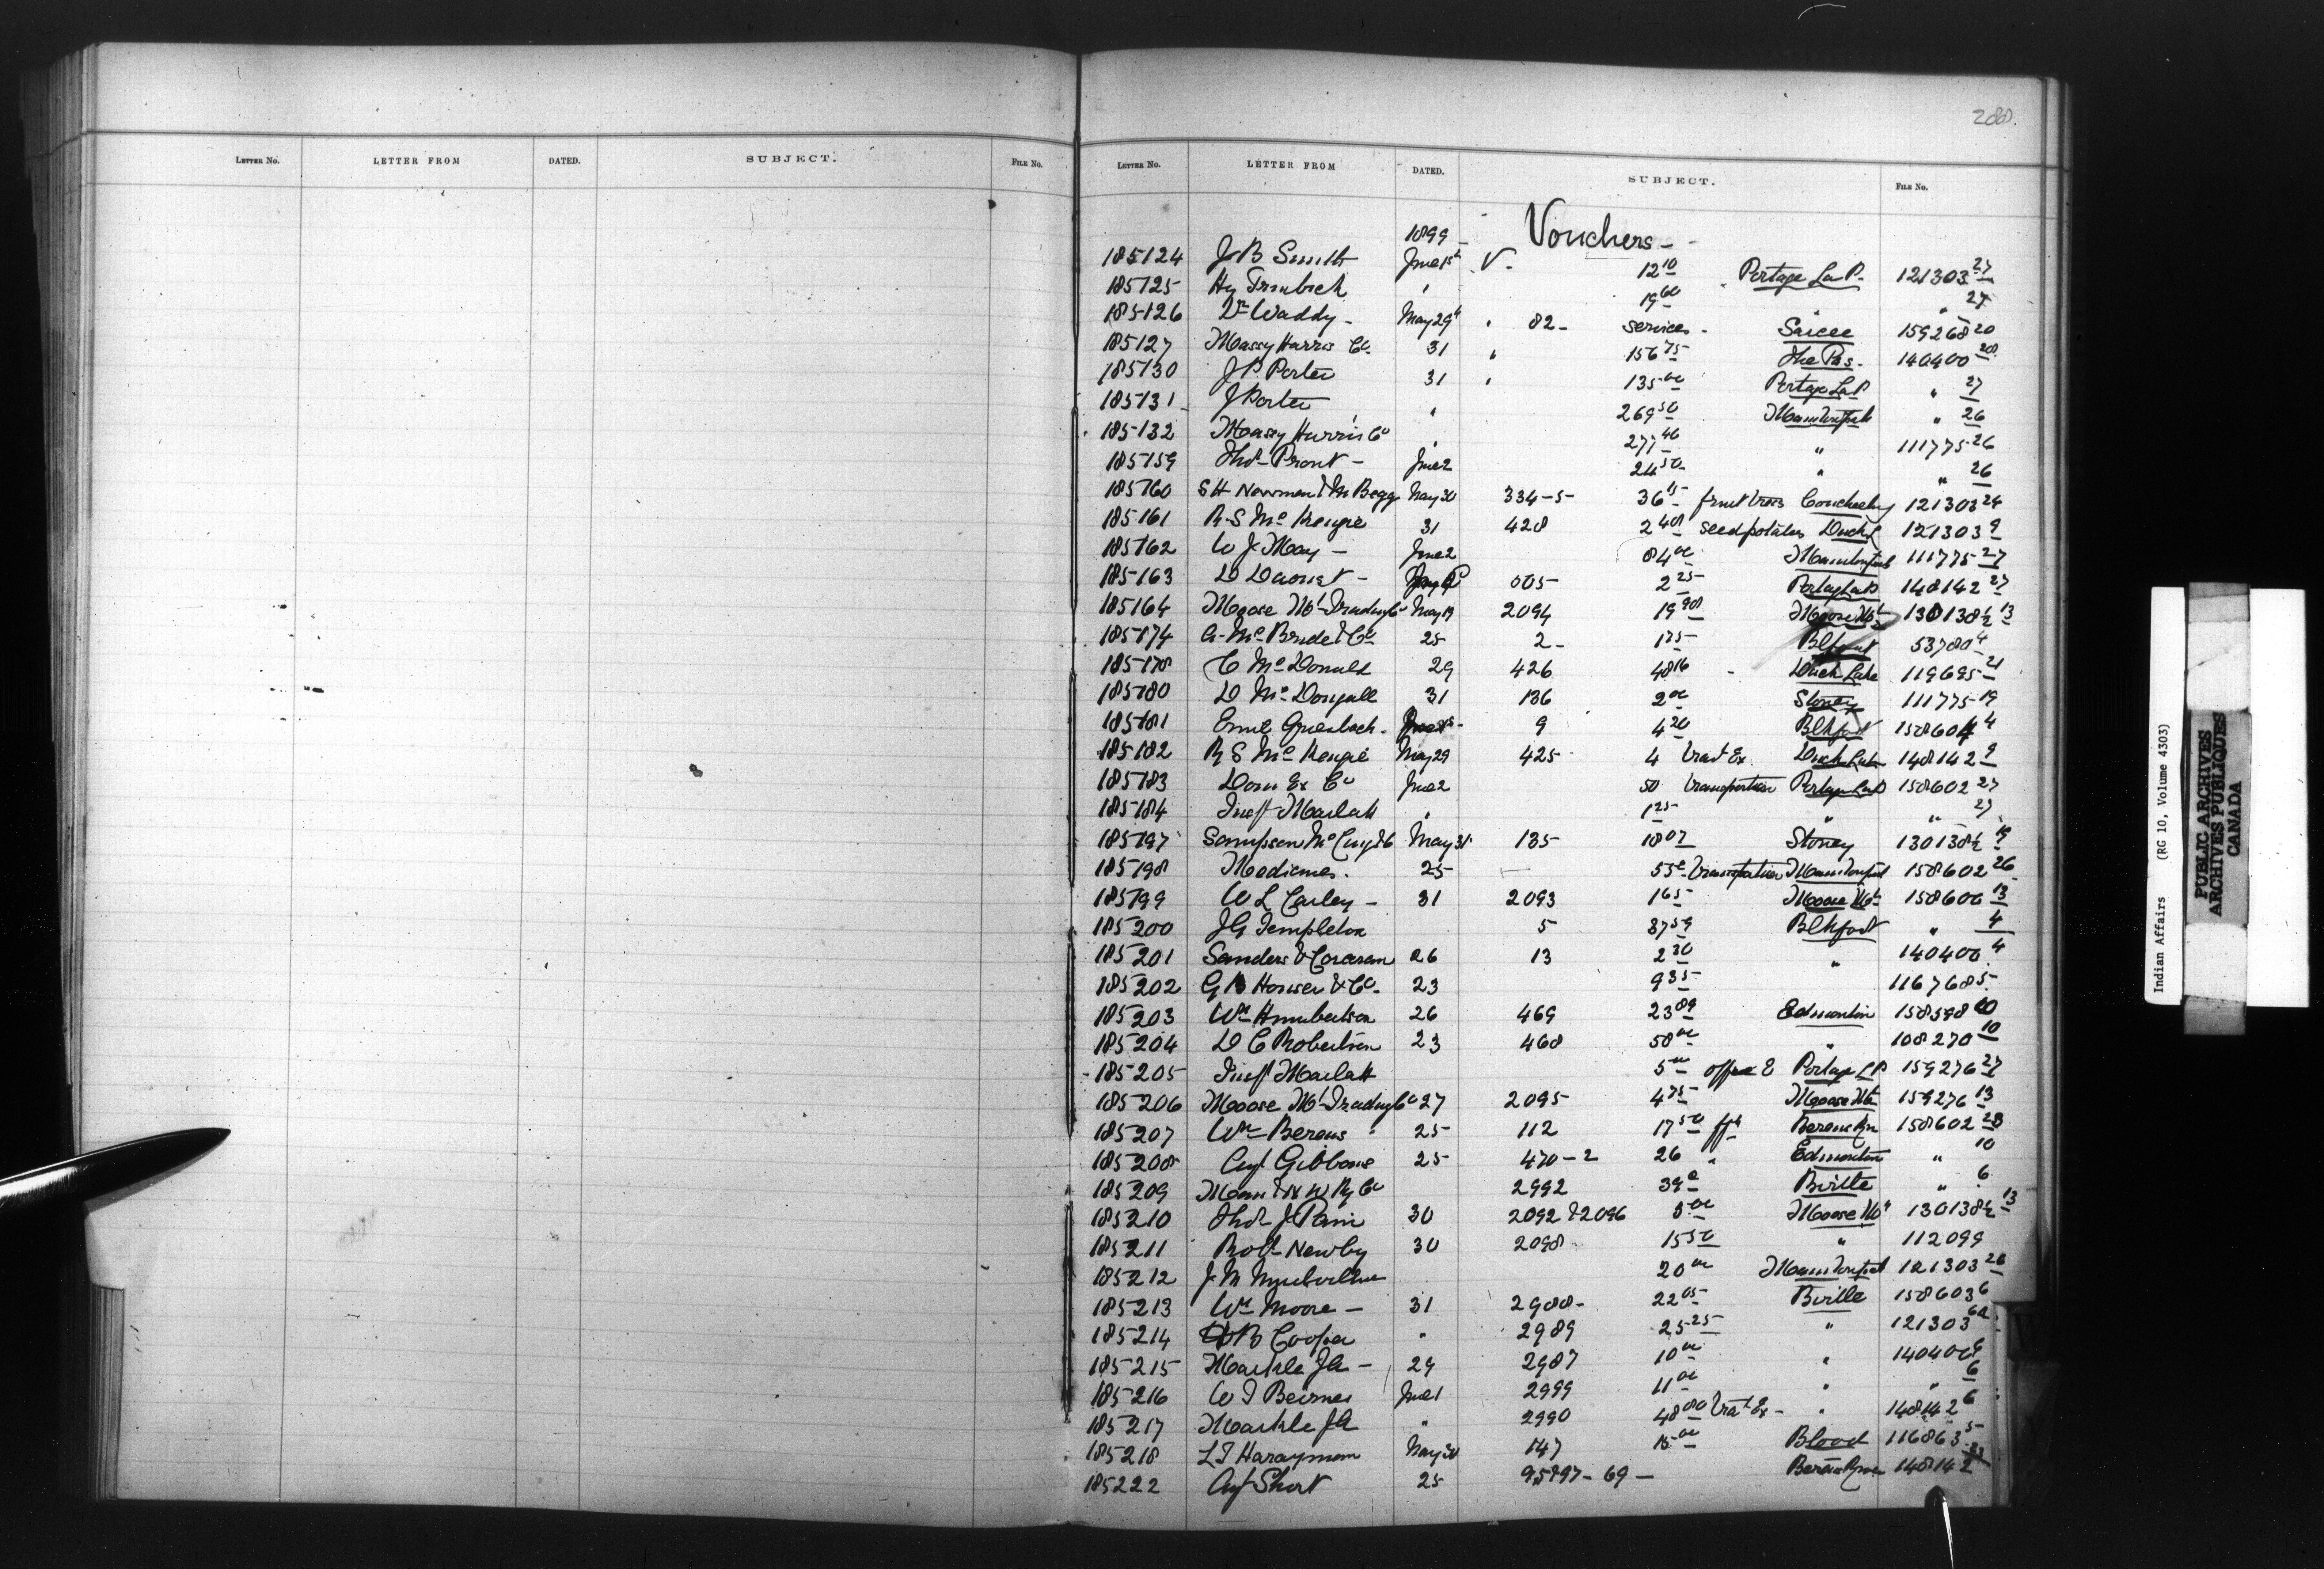 288.
LETTER No. LETTER FROM DATED. SUBJECT. FILE No.
LETTER No. LETTER FROM DATED. SUBJECT. FILE No.
1899 - Vouchers -
185124 J B Smith June 1st V. 12 10 Portage La P. 121303 27
185125 Hy 19 60 " 27
185126 Dr Waddy - May 29th " 82 - services - Sarcee 159268 20
185127 Massy Harris Co. 31 " 156 75 The Pas. 140400 28
185130 J P. Porter 31 " 135 00 Portage La P " 27
185131 J Porter " 269 50 " 26
185132 Massy Harris Co " 277 46 " 111775 26
185159 Thos Pront - June 2 24 50 " " 26
185160 S H Newman & M Begg May 30 334-5 36 15 fruit trees Couchg 121303 24
185161 R S McKenzie 31 428 2 40 seed potatoes Duck L 121303 9
185162 W J May - June 2 84 00 111775 27
185163 D 005 2 25 Portage La P 148142 27
185164 Moose Mt Trading Co May 19 2094 19 90 Moose Mt 130138½ 13
185174 A McBride & Co 25 2 - 1 75 Blkfoot 53780 4
185178 C McDonald 29 426 48 16 - Duck Lake 119695 21
185180 D McDougall 31 136 2 00 Stoney 111775 19
185181 Ernst Griesbach - 9 4 20 Blkfoot 158604 4
185182 R S McKenzie May 29 425 4 trav Ex. Duck Lake 148142 9
185183 Dom Ex Co June 2 50 transportation Portage La P 158602 27
185184 Insp Marlatt " 1 25 " " 27
185197 Sampson McCuy & Co May 31 135 18 07 Stoney 130138½ 19
185198 Medicines. 25 — 55c transportation 158602 26
185199 W L Carley - 31 2093 1 65 Moose Mt 158606 13
185200 J G Templeton 5 37 59 Blkfoot " 4
185201 Sanders & Corcoran 26 13 2 30 " 140400 4
185202 G Houser & Co. 23 9 35 116768 5
185203 Wm Humberstone 26 469 23 89 Edmonton 158598 10
185204 D C Robertson 23 468 58 00 " 108270 10
185205 Insp Marlatt 5 00 office E Portage L P 159276 27
185206 Moose Mt Trading Co 27 2095 4 75 Moose Mt 159276 13
185207 Wm Berens " 25 112 17 50 fft Berens Rr 158602 28
185208 Agt Gibbons 25 470-2 26 " Edmonton " 10
185209 Man & N W Ry Co 2992 39c Birtle " 6
185210 Thos J Pain 30 2092 & 2096 5 00 Moose Mt 130138½ 13
185211 Robt Newby 30 2098 15 50 " 112099
185212 J M 20 00 121303 26
185213 Wm Moore - 31 2988 - 22 05 Birtle 158603 6
185214 B Cooper " 2989 25 25 " 121303 6a
185215 Markle J A - 29 2987 10 00 " 140400 6
185216 W J Beirnes June 1 2999 11 00 " " 6
185217 Markle J A " 2990 48 00 travt Ex - " 148142 6
185218 L T Harayman May 30 147 15 00 Blood 116863 5
185222 Agt Short 25 95897-69 - Berens River 148142
Indian Affairs (RG 10, Volume 4303)
PUBLIC ARCHIVES
ARCHIVES PUBLIQUES
CANADA